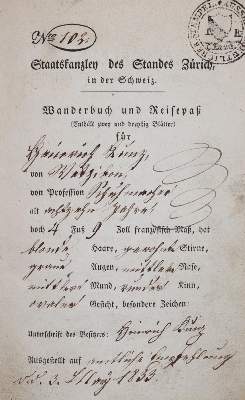 No. 102.
Staatskanzley des Standes Zürich,
in der Schweiz.
Wanderbuch und Reisepaß
(Enthält zwey und dreyßig Blätter)
für
Heinrich Kunz,
von
von Profession Schuhmacher
alt achtzehn Jahre
hoch 4 Fuß 9 Zoll französisch Maß, hat
blonde Haare, Stirne,
graue Augen, mittlere Nase,
mittlern Mund, rundes Kinn,
ovales Gesicht, besondere Zeichen
Unterschrift des Besitzers: Heinrich Kunz
Ausgestellt auf amtliche Empfehlung
d. 3. May 1833.